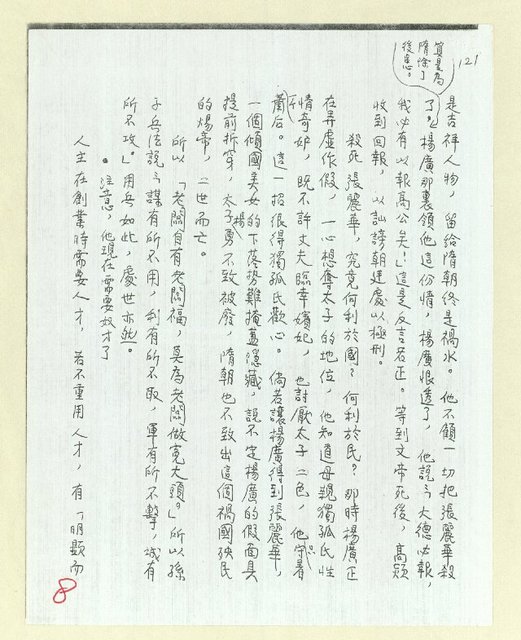 121
算是為
隋除了
後患。
是吉祥人物，留給隋朝終是禍水。他不顧一切把張麗華殺
了。楊廣那裏領他這份情，楊廣恨透了，他說：大德必報，
我必有以報高公矣！這是反言若正。等到文帝死後，高熲
收到回報，以訕謗朝廷處以極刑。
殺死張麗華，究竟何利於國？何利於民？那時楊廣正
在弄虛作假，一心想奪太子的地位，他知道母親獨孤氏性
情奇妒，既不許丈夫臨幸嬪妃，也討厭太子二色，他守着
蕭后。這一招很得獨孤氏歡心。倘若讓楊廣得到張麗華，
一個傾國美女的下落勢難掩蓋隱藏，說不定楊廣的假面具
提前拆穿，太子楊勇不致被廢，隋朝也不致出這個禍國殃民
的煬帝，二世而亡。
所以「老闆自有老闆福，莫為老闆做寬大頭。」所以孫
子兵法說：謀有所不用，利有所不取，軍有所不擊，城有
所不攻。」用兵如此，處世亦然。
注意，他現在需要奴才了
人主在創業時需要人才，若不重用人才，有「明顯而
8